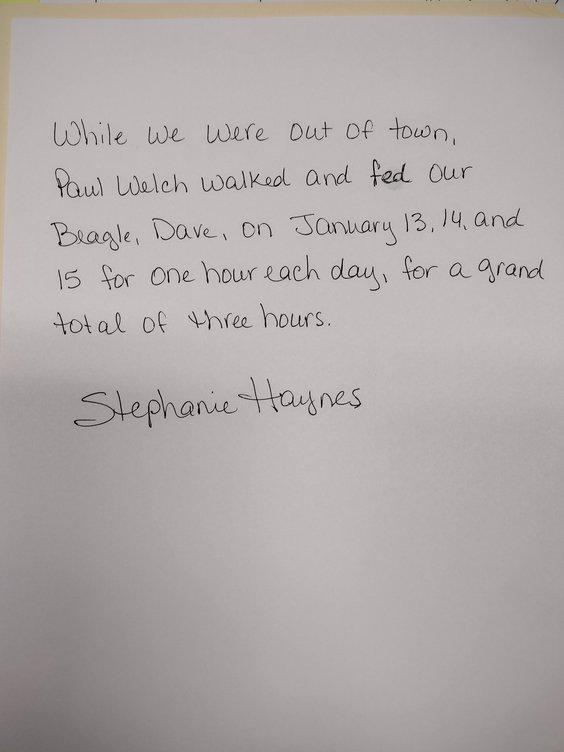 While we were out of town,
Paul Welch walked and fed our
Beagle, Dave, on January 13, 14, and
15 for one hour each day, for a grand
total of three hours.
Stephanie Haynes